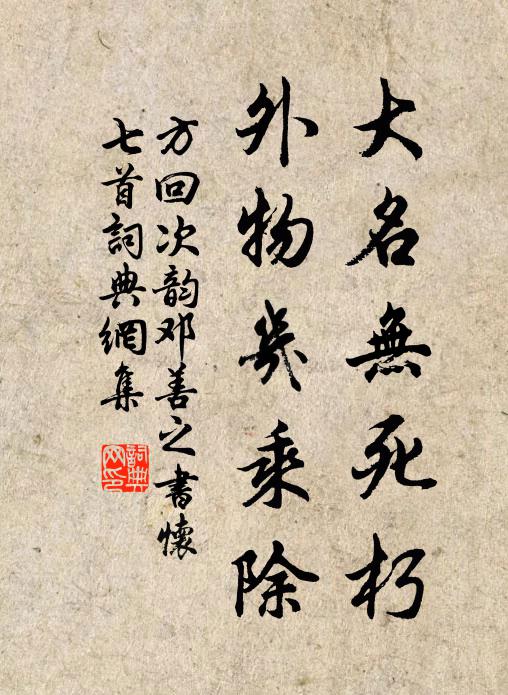 大名無死朽
外物幾乘除
方回次韵邓善之書懷
七首詞典網集
詞典网印